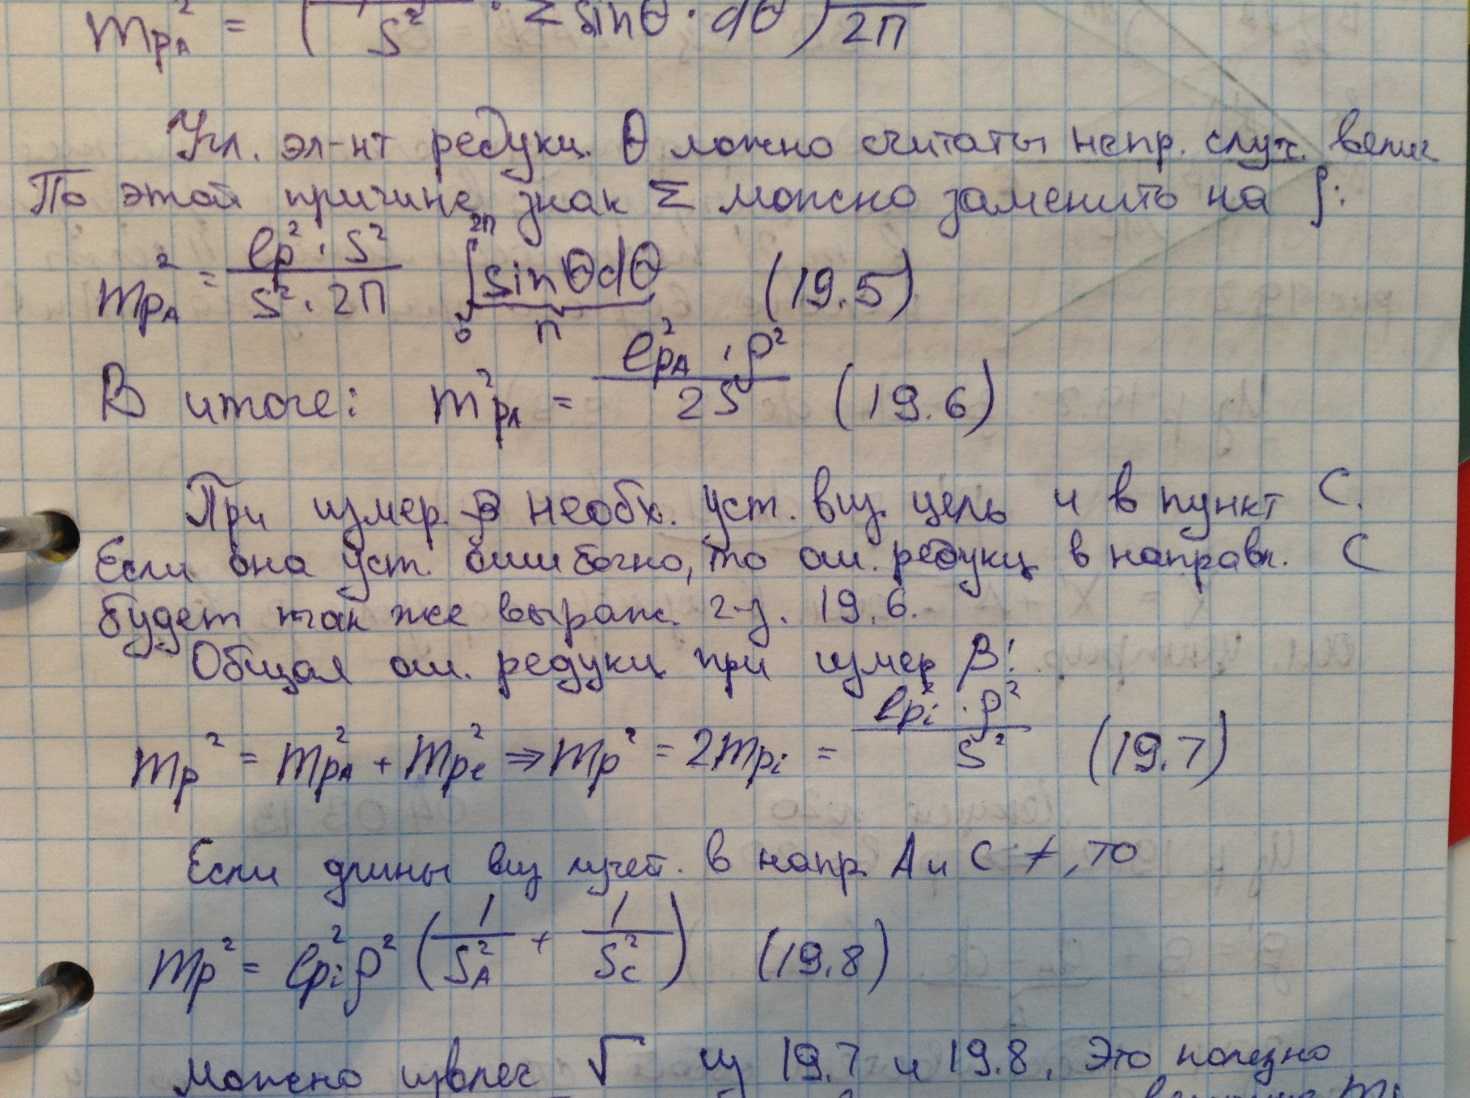 m²pA = ( / S² · Σ sinθ · dθ ) / 2П
Угл. эл-нт редукц. θ можно считать непр. случ. велич
По этой причине знак Σ можно заменить на ∫:
m²pA = lp² · S² / S² · 2П ∫₀²ᴾ sinθdθ (19.5)
П
В итоге: m²pA = l²pA · ρ² / 2S (19.6)
При измер. β необх. уст. виз. цель и в пункт С.
Если она уст. ошибочно, то ош. редукц в направл. С
будет так же выраж. г-з. 19.6.
Общая ош. редукц при измер β:
mp² = m²pA + m²pc ⇒ mp² = 2mpi = lpi · ρ² / S² (19.7)
Если длины виз лучей. в напр. А и С ≠, то
mp² = l²pi ρ² ( 1 / S²A + 1 / S²C ) (19.8)
Можно извлеч √ из 19.7 и 19.8. Это полезно